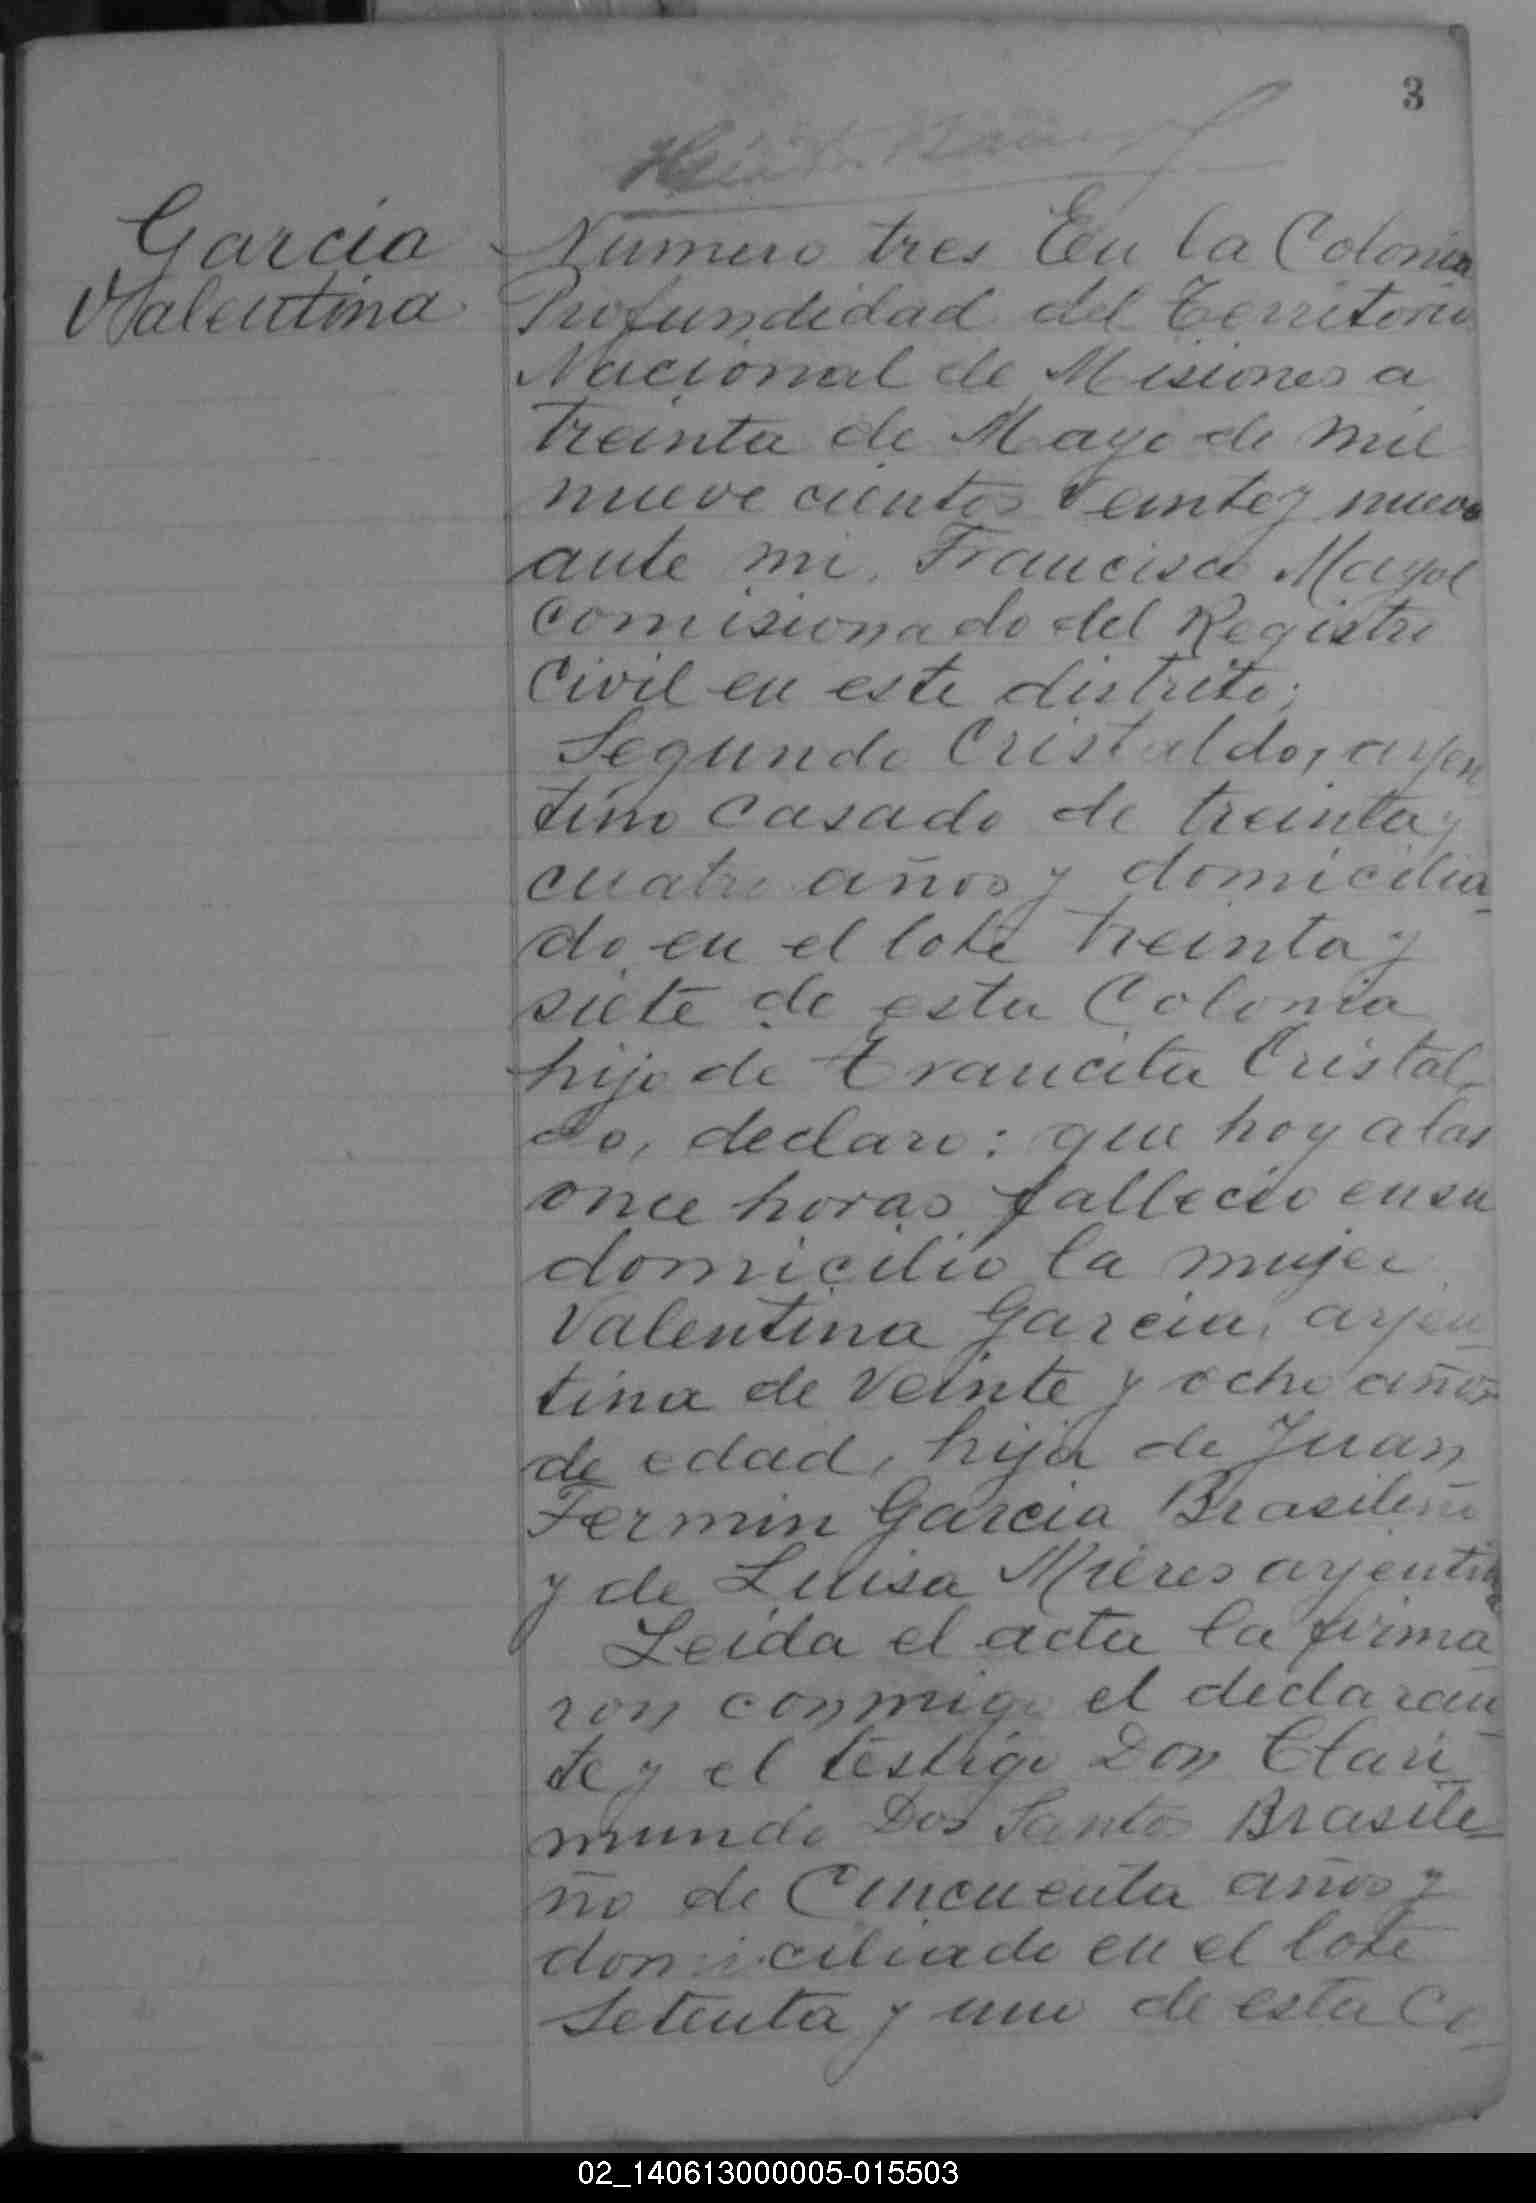 3
Garcia
Valentina
Numero tres En la Colonia
Profundidad del Territorio
Nacional de Misiones a
treinta de Mayo de mil
nueve cientos veinte y nueve
ante mi, Francisco Mayol
comisionado del Registro
Civil en este distrito;
Segundo Cristaldo, arjen
tino casado de treinta y
cuatro años y domicilia-
do en el lote treinta y
siete de esta Colonia
hijo de Trancita Cristal-
do, declaro: que hoy a las
once horas fallecio en su
domicilio la mujer
Valentina Garcia, arjen
tina de veinte y ocho años
de edad, hija de Juan
Fermin Garcia Brasileño
y de Luisa Mieres arjentina
Leida el acta la firma
ron conmigo el declaran-
te y el testigo Don Clari-
mundo Dos Santos Brasile-
ño de Cincuenta años y
domiciliado en el lote
Setenta y uno de esta Co-
02_140613000005-015503